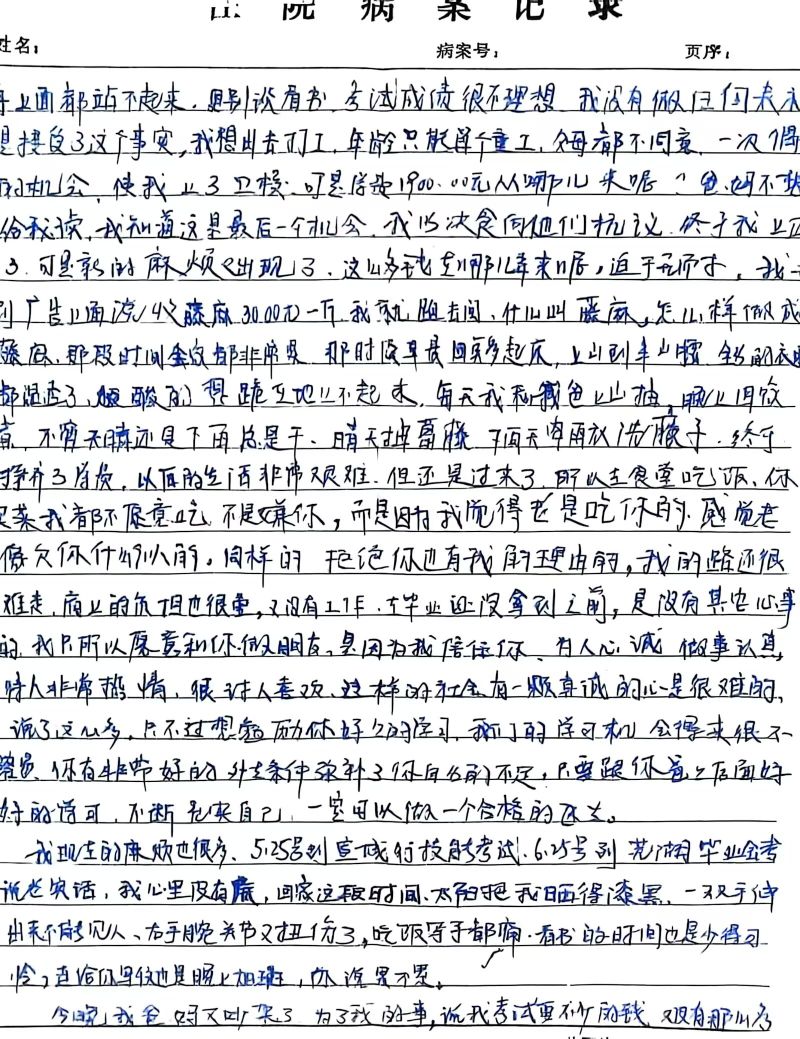 医院病案记录
姓名： 病案号： 页序：
上面都站不起来，更别谈看书，考试成绩很不理想，我没有做任何表示
接受了这个事实，我想出去打工，年龄只能算个童工，父母都不同意，一次偶
机会，使我上了卫校，可是学费1900.00元从哪儿来呢？爸妈不
给我读，我知道这是最后一个机会，我以决食向他们抗议，终于我上
了，可是新的麻烦又出现了，这么多钱在哪儿弄来呢，迫于无奈，我
广告上面说收藤麻30.00元一斤，我就跑去问，什么叫藤麻，怎么样做成
藤麻，那段时间全家都非常累，那时候早晨四点多起床，上山到半山腰，全身的衣服
都湿透了，腿酸的跪在地上不起来，每天我和爸上山抽，晚上回家
煮，不管天晴还是下雨总是干，晴天掉葛藤，下雨天冒雨放洗藤子，终于
挣齐了学费，以后的生活非常艰难，但还是过来了，所以在食堂吃饭，你
买菜我都不愿意吃，不是嫌你，而是因为我觉得老是吃你的，感觉老
像欠你什么似的，同样的拒绝你也有我的理由的，我的路还很
难走，肩上的负担也很重，又没有工作，在毕业证没拿到之前，是没有其它心事
的，我只所以愿意和你做朋友，是因为我信任你，为人心诚，做事认真，
待人非常热情，很讨人喜欢，这样的社会有一颗真诚的心是很难的，
说了这么多，只不过想勉励你好好的学习，我们的学习机会得来很不
容易，你有非常好的外在条件弥补了你自身的不足，只要跟你爸爸后面好
好的学习，不断充实自己，一定可以做一个合格的医生。
我现在的麻烦也很多，5.25号到宣城行技能考试，6.25号到芜湖毕业会考
说老实话，我心里没有底，回家这段时间，太阳把我晒得漆黑，一双手伸
出来不能见人，右手腕关节又扭伤了，吃饭等于都痛，看书的时间也是少得可
怜，连给你写信也是晚上加班，你说累不累。
今晚我爸妈又吵架了，为了我的事，说我考试要不少的钱，又没有那么多